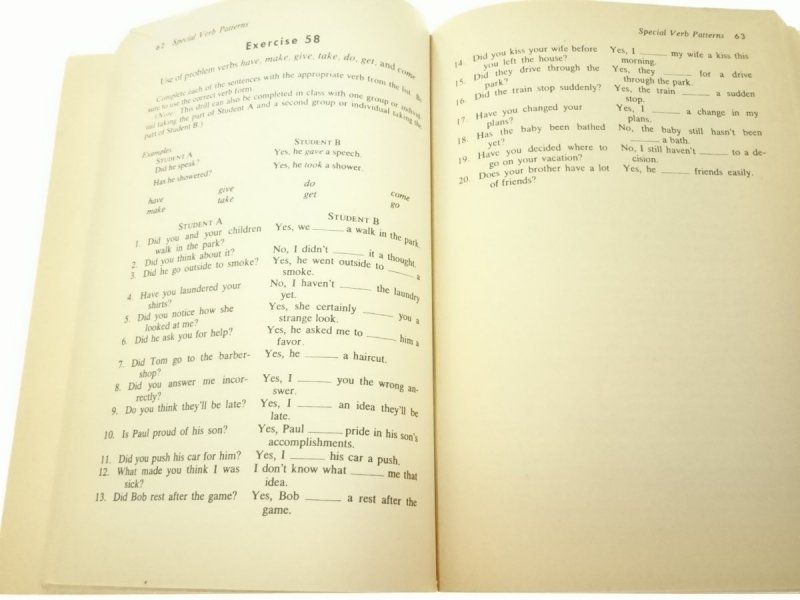 62 Special Verb Patterns
Exercise 58
Use of problem verbs have, make, give, take, do, get, and come
Complete each of the sentences with the appropriate verb from the list. Be
sure to use the correct verb form.
(Note: This drill can also be completed in class with one group or individ-
ual taking the part of Student A and a second group or individual taking the
part of Student B.)
Examples
STUDENT A STUDENT B
Did he speak? Yes, he gave a speech.
Has he showered? Yes, he took a shower.
have give do come
make take get go
STUDENT A STUDENT B
1. Did you and your children Yes, we ______ a walk in the park.
walk in the park?
2. Did you think about it? No, I didn't ______ it a thought.
3. Did he go outside to smoke? Yes, he went outside to ______ a
smoke.
4. Have you laundered your No, I haven't ______ the laundry
shirts? yet.
5. Did you notice how she Yes, she certainly ______ you a
looked at me? strange look.
6. Did he ask you for help? Yes, he asked me to ______ him a
favor.
7. Did Tom go to the barber- Yes, he ______ a haircut.
shop?
8. Did you answer me incor- Yes, I ______ you the wrong an-
rectly? swer.
9. Do you think they'll be late? Yes, I ______ an idea they'll be
late.
10. Is Paul proud of his son? Yes, Paul ______ pride in his son's
accomplishments.
11. Did you push his car for him? Yes, I ______ his car a push.
12. What made you think I was I don't know what ______ me that
sick? idea.
13. Did Bob rest after the game? Yes, Bob ______ a rest after the
game.
Special Verb Patterns 63
14. Did you kiss your wife before Yes, I ______ my wife a kiss this
you left the house? morning.
15. Did they drive through the Yes, they ______ for a drive
park? through the park.
16. Did the train stop suddenly? Yes, the train ______ a sudden
stop.
17. Have you changed your Yes, I ______ a change in my
plans? plans.
18. Has the baby been bathed No, the baby still hasn't been
yet? ______ a bath.
19. Have you decided where to No, I still haven't ______ to a de-
go on your vacation? cision.
20. Does your brother have a lot Yes, he ______ friends easily.
of friends?